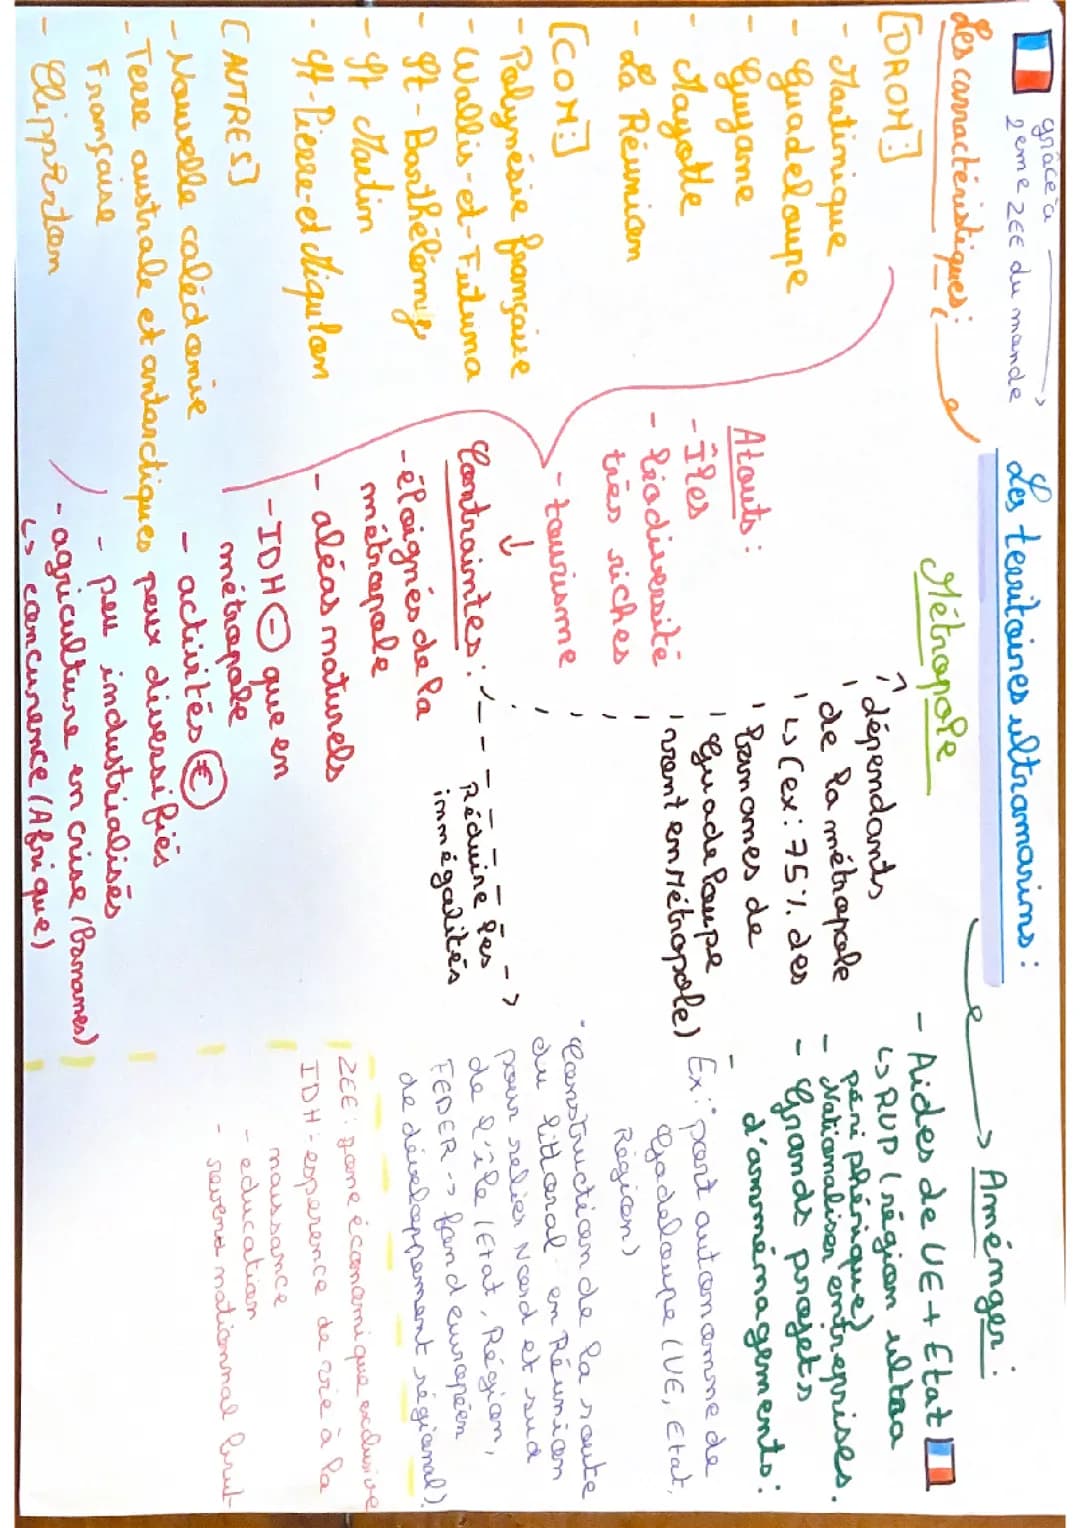 grâce à
2ème ZEE du monde
Les territoires ultramarins :
Les carractéristiques :
[DROM :]
- Martinique
- Guadeloupe
- Guyane
- Mayotte
- La Réunion
[COM :]
- Polynésie française
- Wallis-et-Futuna
- St-Barthélomye
- St Martin
- St-Pierre-et Miquelon
[AUTRES]
- Nouvelle calédonie
- Terre australe et antarctiques
Française
- Clipperton
Métropole
Atouts :
- Îles
- biodiversité
très riches
- tourisme
↓
Contraintes :
- éloignés de la
métropole
- aléas naturels
- IDH ⊖ que en
métropole
- activités €
peux diversifiés
- peu industrialisés
- agriculture en crise (bananes)
↳ concurence (Afrique)
dépendants
de la métropole
↳ (ex : 75% des
bananes de
Guadeloupe
vont en Métropole)
Réduire les
innégalités
Aménger :
- Aides de UE + Etat
↳ RUP (région ultra
périphérique)
- Nationaliser entreprises.
- Grands projets
d'amménagements :
Ex : port autonomme de
Gadeloupe (UE, Etat,
Région)
- Construction de la route
du littoral en Réunion
pour relier Nord et sud
de l'île (Etat, Région,
FEDER -> fond européen
de développement régional).
ZEE : zone économique exclusive
IDH - esperence de vie à la
naissance
- education
- revenu nationnal brut